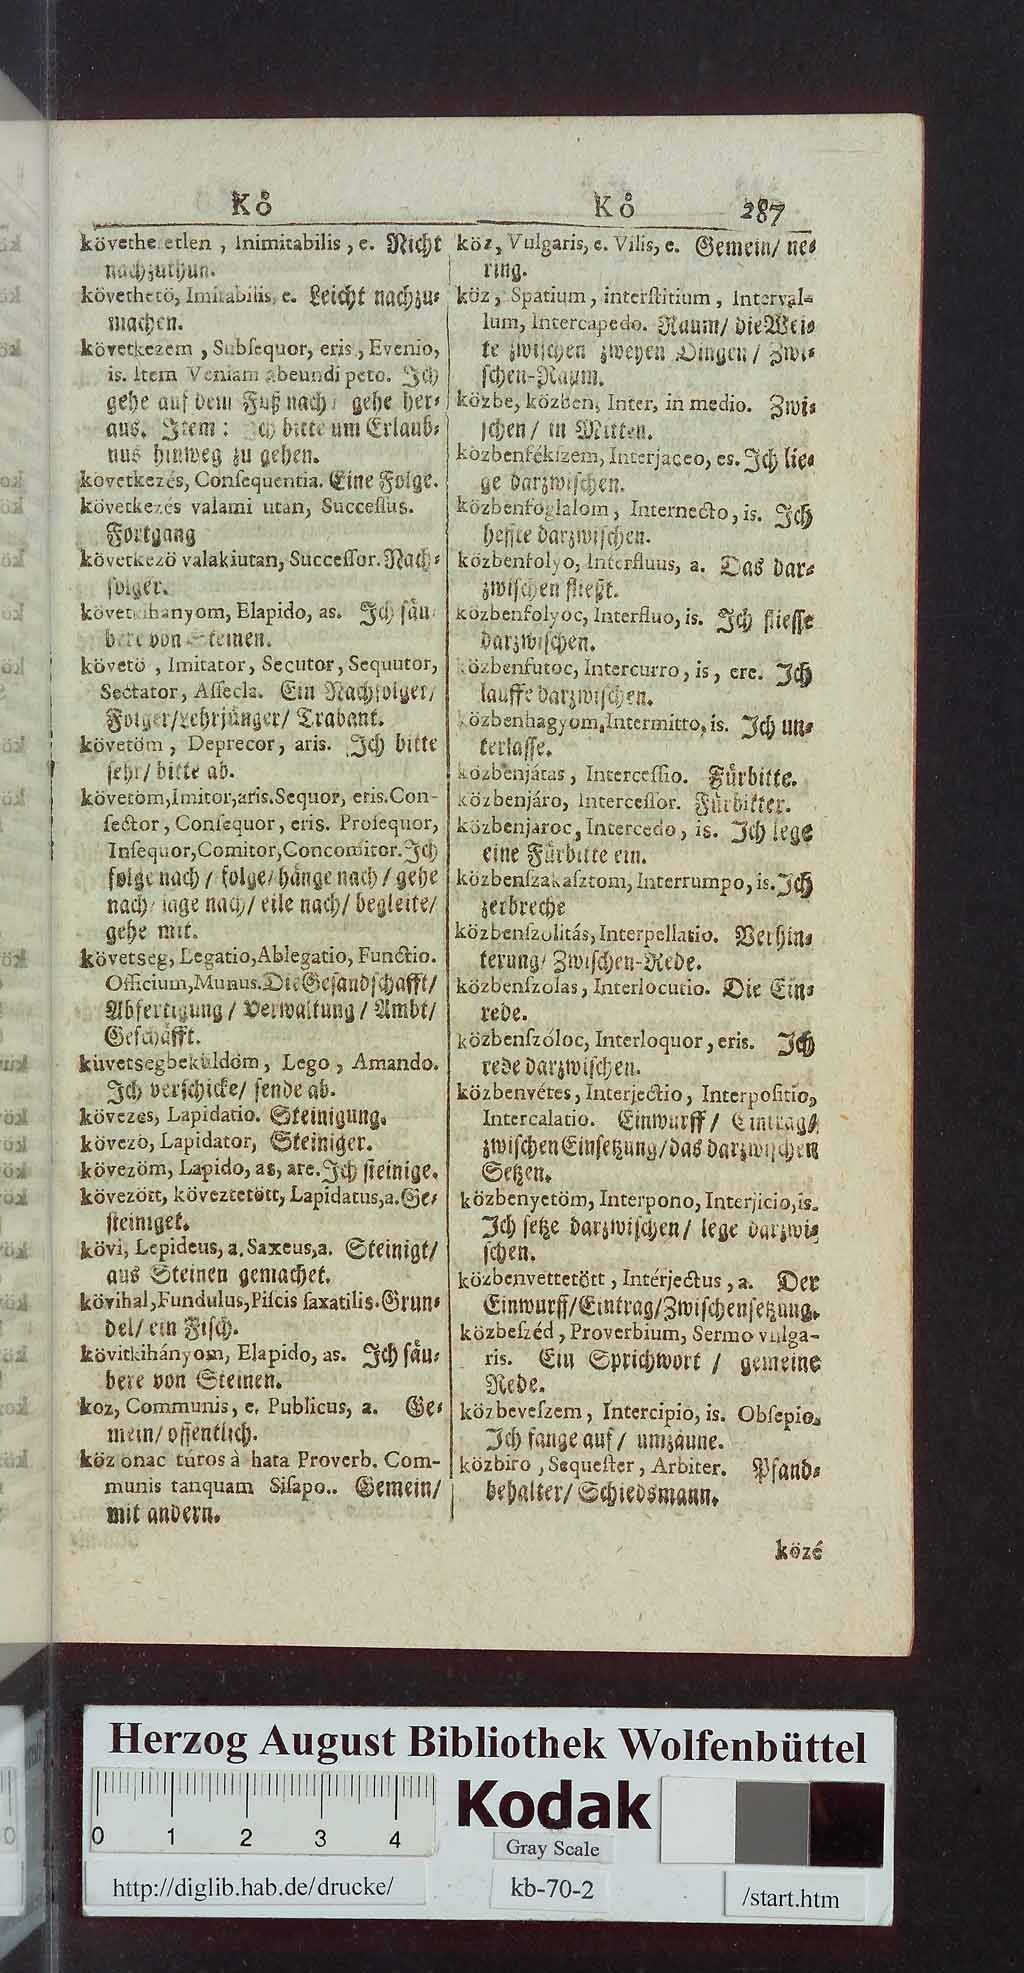 Kő
köverhetetlen , Inimitabilis , e. Nicht
nachzuthun.
követhetö, Imitabilis, e. Leicht nachzu-
machen.
következem , Subſequor, eris, Evenio,
is. Item Veniam abeundi peto. Ich
gehe auf dem Fuß nach/ gehe her-
aus. Item: Ich bitte um Erlaub-
nus hinweg zu gehen.
következés, Conſequentia. Eine Folge.
következés valami utan, Succeſſus.
Fortgang
következö valakiutan, Succeſſor. Nach-
folger.
követkihányom, Elapido, as. Ich ſåu-
bere von Steinen.
követö , Imitator, Secutor, Sequutor,
Sectator, Aſſecla. Ein Nachfolger/
Folger/Lehrjůnger/ Trabant.
követöm , Deprecor, aris. Ich bitte
ſehr/ bitte ab.
követöm, Imitor, aris. Sequor, eris. Con-
ſector, Conſequor, eris. Proſequor,
Inſequor, Comitor, Concomitor. Ich
folge nach/ folge/ hånge nach/ gehe
nach/ jage nach/ eile nach/ begleite/
gehe mit.
követseg, Legatio, Ablegatio, Functio.
Officium, Munus. Die Geſandſchafft/
Abfertigung/ Verwaltung/ Ambt/
Geſchåfft.
küvetsegbekuldöm, Lego, Amando.
Ich verſchicke/ ſende ab.
kövezes, Lapidatio. Steinigung.
kövezö, Lapidator, Steiniger.
kövezöm, Lapido, as, are. Ich ſteinige.
kövezött, köveztetött, Lapidatus, a. Ge-
ſteiniget.
kövi, Lepideus, a. Saxeus, a. Steinigt/
aus Steinen gemachet.
kövihal, Fundulus, Piſcis ſaxatilis. Grun-
del/ ein Fiſch.
kövitkihányom, Elapido, as. Ich ſåu-
bere von Steinen.
koz, Communis, e. Publicus, a. Ge-
mein/ offentlich.
köz onac túros à hata Proverb. Com-
munis tanquam Siſapo.. Gemein/
mit andern.
Kő 287
köz, Vulgaris, e. Vilis, e. Gemein/ ne-
ring.
köz, Spatium, interſtitium, Interval-
lum, Intercapedo. Raum/ die Wei-
te zwiſchen zweyen Dingen/ Zwi-
ſchen-Raum.
közbe, közben, Inter, in medio. Zwi-
ſchen/ in Mitten.
közbenfékſzem, Interjaceo, es. Ich lie-
ge darzwiſchen.
közbenfoglalom, Internecto, is. Ich
heffte darzwiſchen.
közbenfolyo, Interfluus, a. Das dar-
zwiſchen fließt.
közbenfolyoc, Interfluo, is. Ich flieſſe
darzwiſchen.
közbenfutoc, Intercurro, is, ere. Ich
lauffe darzwiſchen.
közbenhagyom, Intermitto, is. Ich un-
terlaſſe.
közbenjátas, Interceſſio. Fůrbitte.
közbenjáro, Interceſſor. Fůrbitter.
közbenjaroc, Intercedo, is. Ich lege
eine Fůrbitte ein.
közbenſzakaſztom, Interrumpo, is. Ich
zerbreche
közbenſzolitás, Interpellatio. Verhin-
terung/ Zwiſchen-Rede.
közbenſzolas, Interlocutio. Die Ein-
rede.
közbenſzóloc, Interloquor, eris. Ich
rede darzwiſchen.
közbenvétes, Interjectio, Interpoſitio,
Intercalatio. Einwurff/ Eintrag/
zwiſchen Einſetzung/ das darzwiſchen
Setzen.
közbenyetöm, Interpono, Interjicio, is.
Ich ſetze darzwiſchen/ lege darzwi-
ſchen.
közbenvettetött, Intérjectus, a. Der
Einwurff/Eintrag/Zwiſchenſetzung.
közbeſzéd, Proverbium, Sermo vulga-
ris. Ein Sprichwort / gemeine
Rede.
közbeveſzem, Intercipio, is. Obſepio.
Ich fange auf/ umzåune.
közbiro, Sequeſter, Arbiter. Pfand-
behalter/ Schiedsmann.
közé
Herzog August Bibliothek Wolfenbüttel
0 1 2 3 4
Kodak
Gray Scale
http://diglib.hab.de/drucke/
kb-70-2
/start.htm